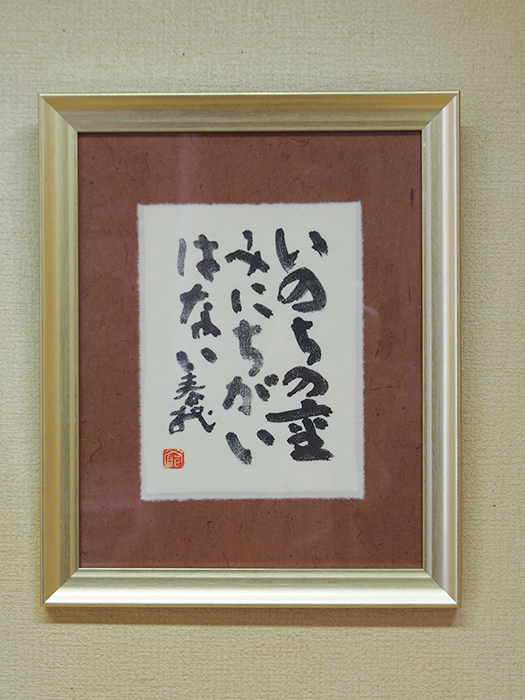 いのちの重
みにちがい
はない